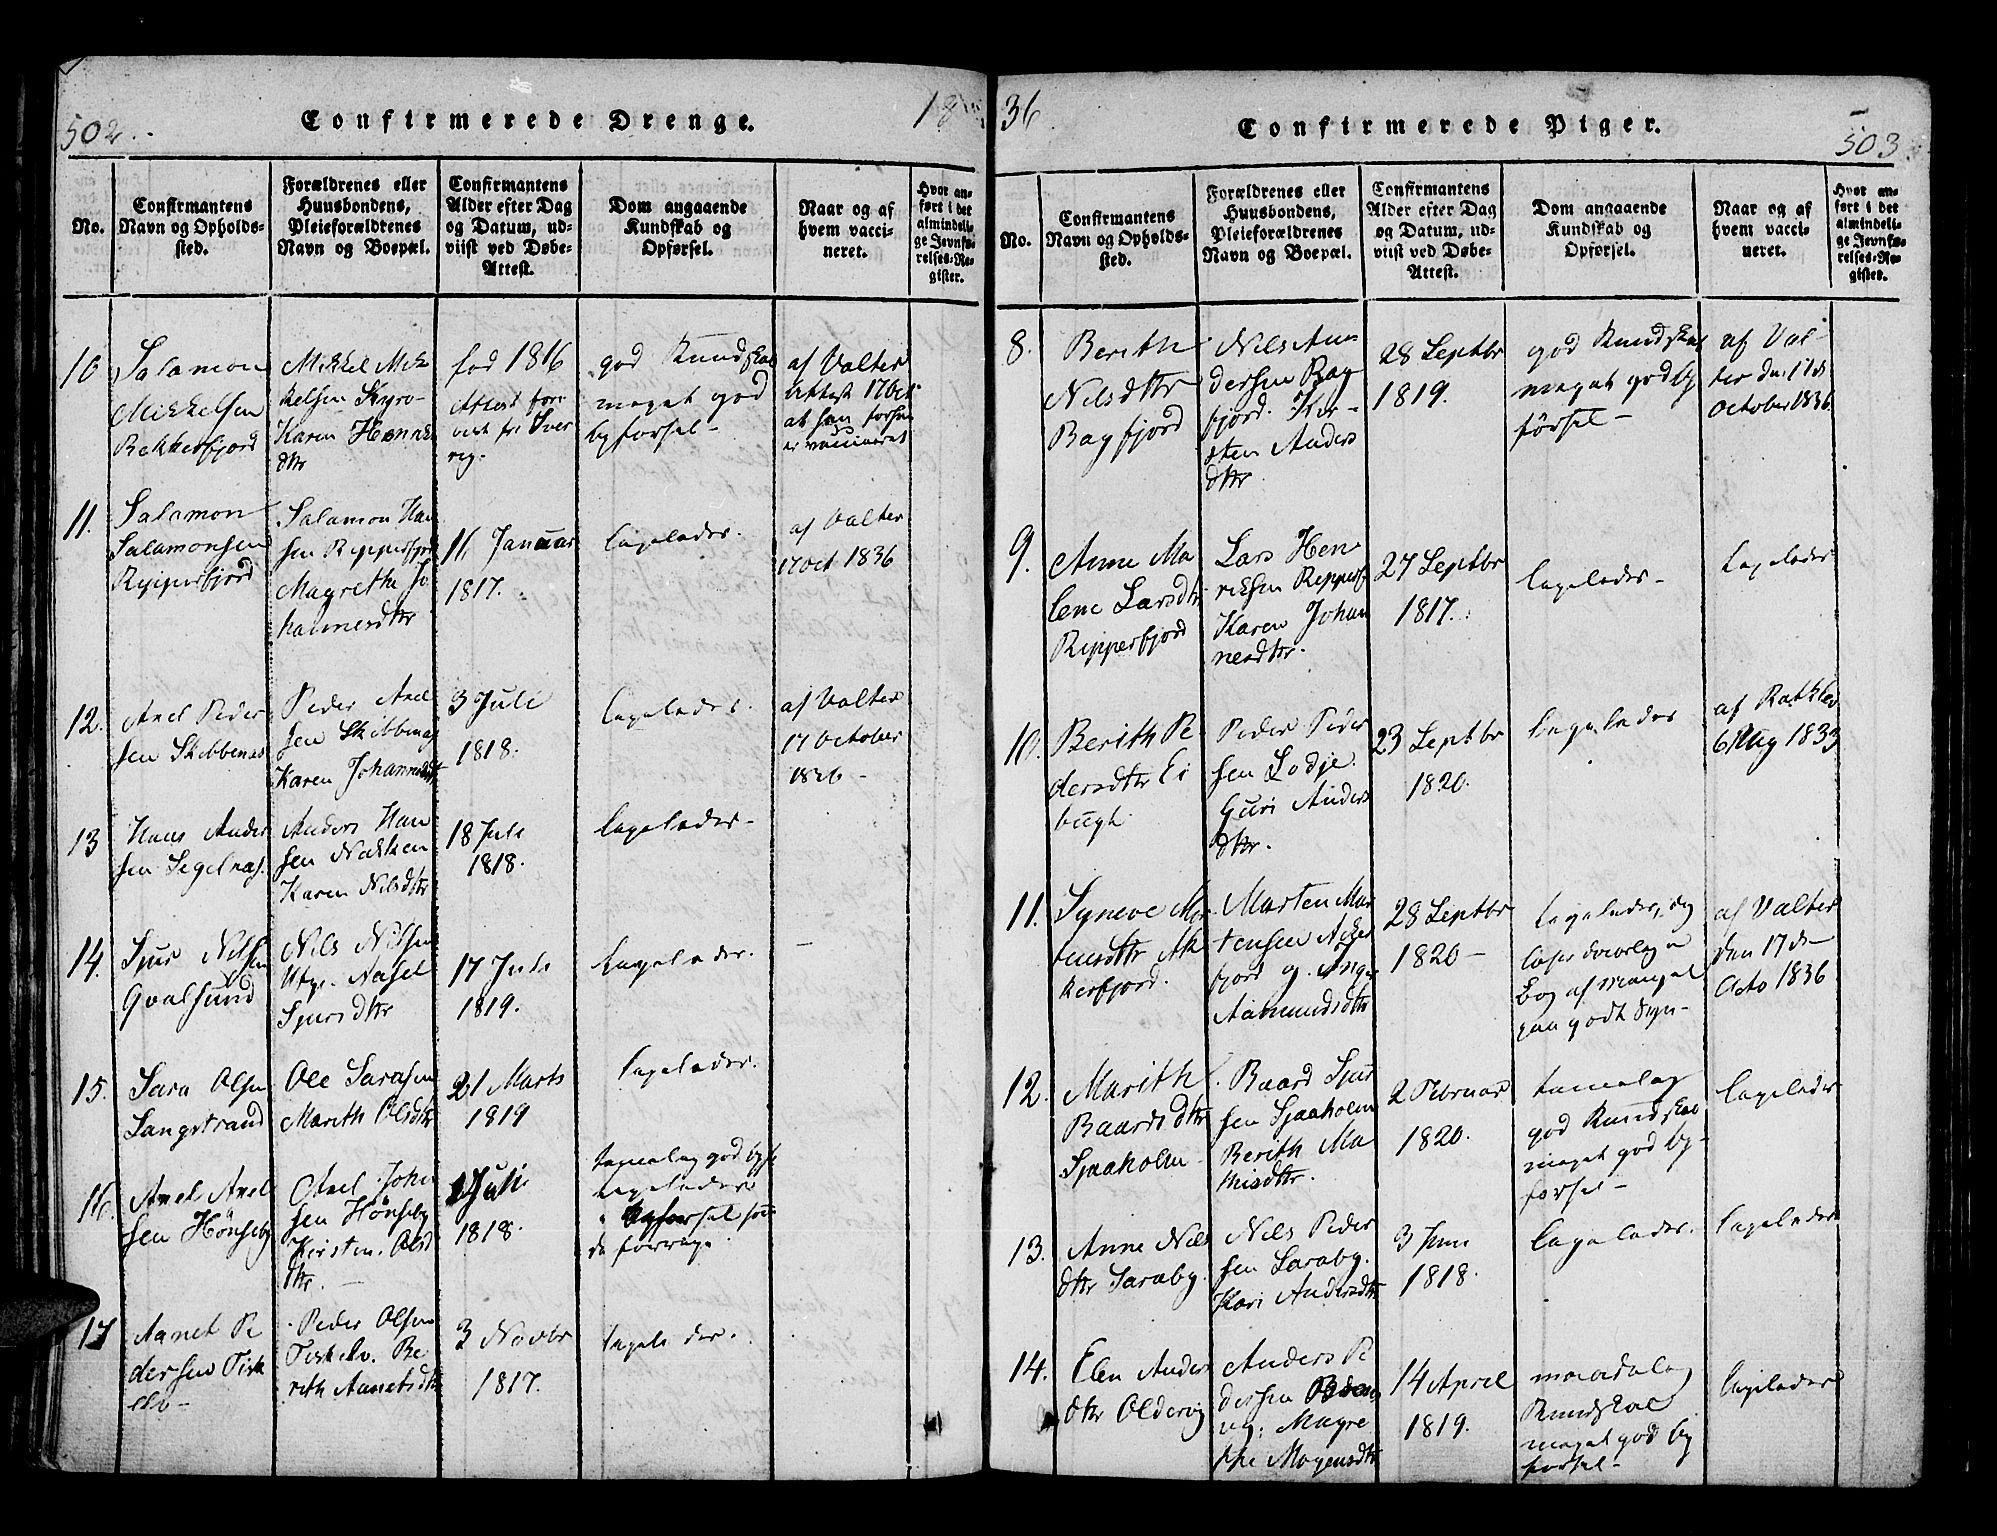 502.
Confirmerede Drenge.
18
No.
Confirmantens
Navn og Opholds-
sted.
Forældrenes eller
Huusbondens,
Pleieforældrenes
Navn og Boepæl.
Confirmantens
Alder efter Dag
og Datum, ud-
viist ved Døbe-
Attest.
Dom angaaende
Kundskab og
Opførsel.
Naar og af
hvem vacci-
neret.
Hvor an-
ført i det
almindeli-
ge Jevnfø-
relses-Re-
gister.
10
Salamon
Mikkelsen
Bekkerfjord
Mikkel Mik
kelsen Kyro-
Karen Henrik
dttr
fod 1816
Attest for
vist fra Sver
rig.
god Kundskab
meget god
opforsel-
af Valter
Attest 17 Oct
at han forhen
er vaccineret
11.
Salamon
Salamonsen
Ripperfjord
Salamon Han
sen Ripperfjord
Magrethe Jo
hannesdttr
11. Januar
1817.
ligeledes.
af Valter
17 Oct 1836
12.
Axel Peder
sen Skibbenæs
Peder Axel
sen Skibbenæs
Karen Johannesdt
3 Juli
1818.
ligeledes.
af Valter
17 October
1836-
13
Hans Ander
sen Segelnæs.
Anders Han
sen Nakken
Karen Nilsdttr
18 Juli
1818.
ligeledes-
14.
Sjur Nilsen
Qvalsund
Nils Nilsen
Sjursdttr
17 Juli
1819.
ligeledes.
15.
Sara Olsen
Langstrand
Ole Sarasen
Marith Olsdttr
21 Marts
1819
ligeledes.
16.
Axel Axel
sen Hönseby
Axel John
sen Hönseby
Kirsten Olsd
ttr.
Juli
1818.
temelig god
ligeledes
de forrige.
17
Aanet Pe
dersen Fisk
elv-
Peder Olsen
Fiskelv. Be
rith Aanetsdttr
3 Novbr
1817.
ligeledes.
36
Confirmerede Piger.
503.
No.
Confirmantens
Navn og Opholds-
sted.
Forældrenes eller
Huusbondens,
Pleieforældrenes
Navn og Boepæl.
Confirmantens
Alder efter Dag
og Datum, ud-
viist ved Døbe-
Attest.
Dom angaaende
Kundskab og
Opførsel.
Naar og af
hvem vacci-
neret.
Hvor an-
ført i det
almindeli-
ge Jevnfø-
relses-Re-
gister.
8.
Berith
Nilsdttr
Bagfjord
Nils An-
dersen Bag
fjord. Kir-
sten Anders
dttr.
28 Septbr
1819.
god Kundskab
meget god op
försel-
af Val-
ter den 17de
October 1836
9.
Anne Ma
lene Larsdttr
Ripperfjord
Lars Hen
riksen Ripperfj
Karen Johan
nesdttr.
27 Septbr
1817.
ligeledes-
ligeledes
10.
Berith Pe
dersdttr Ei
bugh.
Peder Peder
sen Lodje.
Guri Anders
dttr.
23 Septbr
1820.
ligeledes
af Rathke
6 Aug 1833
11.
Syneve Mor
tensdttr Ak
kerfjord.
Morten Mor
tensen Acker
fjord og Inge
Aamundsdttr
28 Septbr
1820-
ligeledes, dog
læser daarlig i
Bog af mangel
paa godt Syn-
af Valter
den 17de
Octo 1836
12.
Marith
Baardsdttr
Sjaaholm-
Baard Sjur
sen Sjaaholm
Berith Ma
thisdttr.
2 Februar
1820.
temelig
god Kundskab
meget god op-
forsel-
ligeledes
13.
Anne Nils
dttr Saraby.
Nils Peder
sen Saraby.
Kari Andersdttr
3 Juni
1818.
ligeledes.
ligeledes
14.
Elen Anders
dttr Oldervig
Anders Pe
dersen
vig; Magre
the Mogensdttr
14 April
1819.
maadelig
Kundskab
meget god op
forsel-
ligeledes